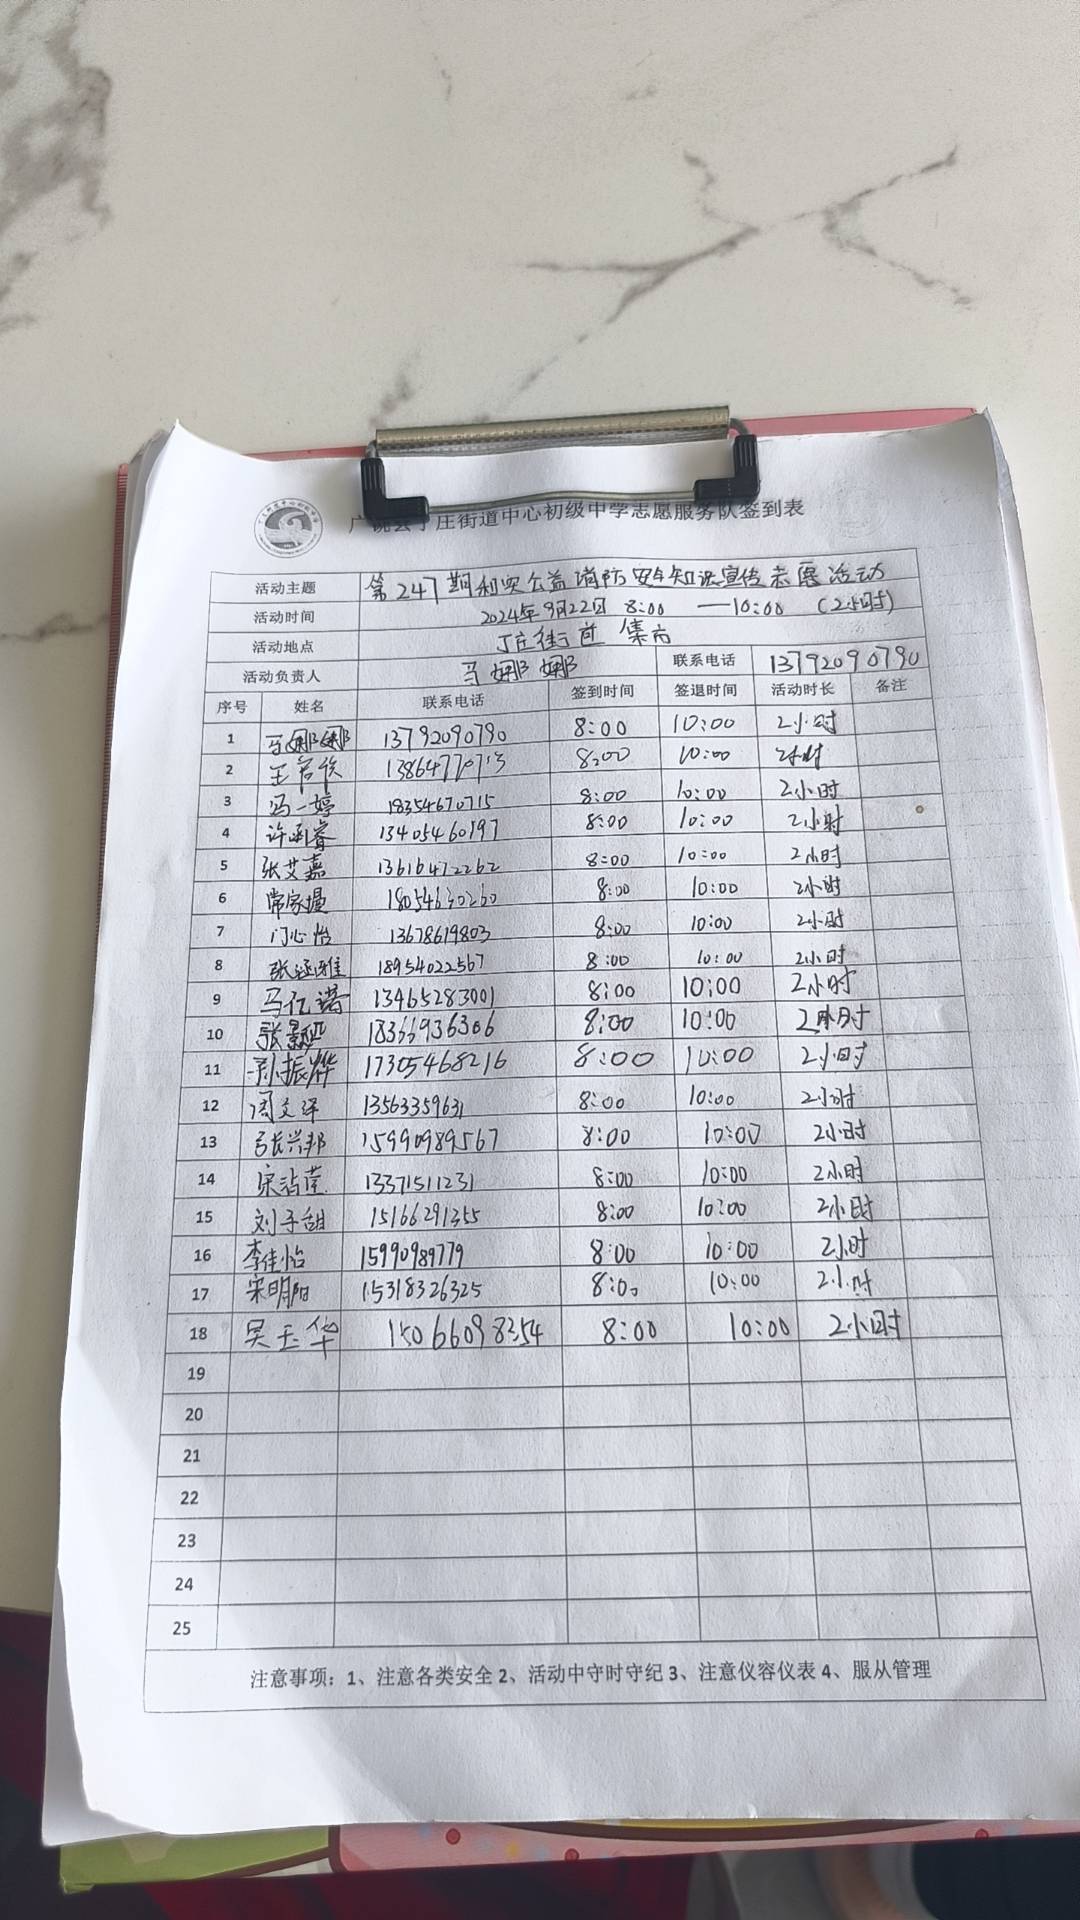 广饶县丁庄街道中心初级中学志愿服务队签到表
活动主题 第247期利奥公益消防安全知识宣传志愿活动
活动时间 2024年9月22日 8:00 —10:00 (2小时)
活动地点 丁庄街道 集市
活动负责人 马娜娜 联系电话 13792090790
序号 姓名 联系电话 签到时间 签退时间 活动时长 备注
1 马娜娜 13792090790 8:00 10:00 2小时
2 8:00 10:00 2小时
3 冯一婷 18354670715 8:00 10:00 2小时
4 许函睿 13405460197 8:00 10:00 2小时
5 张艾嘉 13616472262 8:00 10:00 2小时
6 8:00 10:00 2小时
7 门心怡 13678619803 8:00 10:00 2小时
8 张涵雅 18954022567 8:00 10:00 2小时
9 马亿诺 13465283001 8:00 10:00 2小时
10 18366936306 8:00 10:00 2小时
11 孙振烨 17305468216 8:00 10:00 2小时
12 周文泽 13563359631 8:00 10:00 2小时
13 张兴邦 15990989567 8:00 10:00 2小时
14 宋沾莹 13371511231 8:00 10:00 2小时
15 刘子甜 15166291355 8:00 10:00 2小时
16 李佳怡 15990989779 8:00 10:00 2小时
17 宋明阳 15318326325 8:00 10:00 2小时
18 吴玉华 15066098354 8:00 10:00 2小时
19
20
21
22
23
24
25
注意事项：1、注意各类安全 2、活动中守时守纪 3、注意仪容仪表 4、服从管理